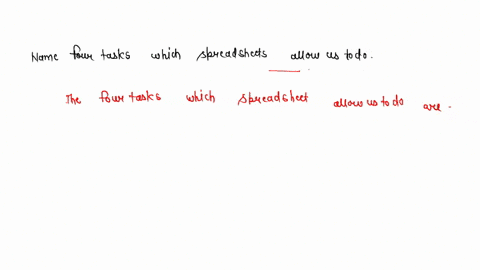 Name four tasks which spreadsheets allow us to do.
The four tasks which spreadsheet allow us to do are.